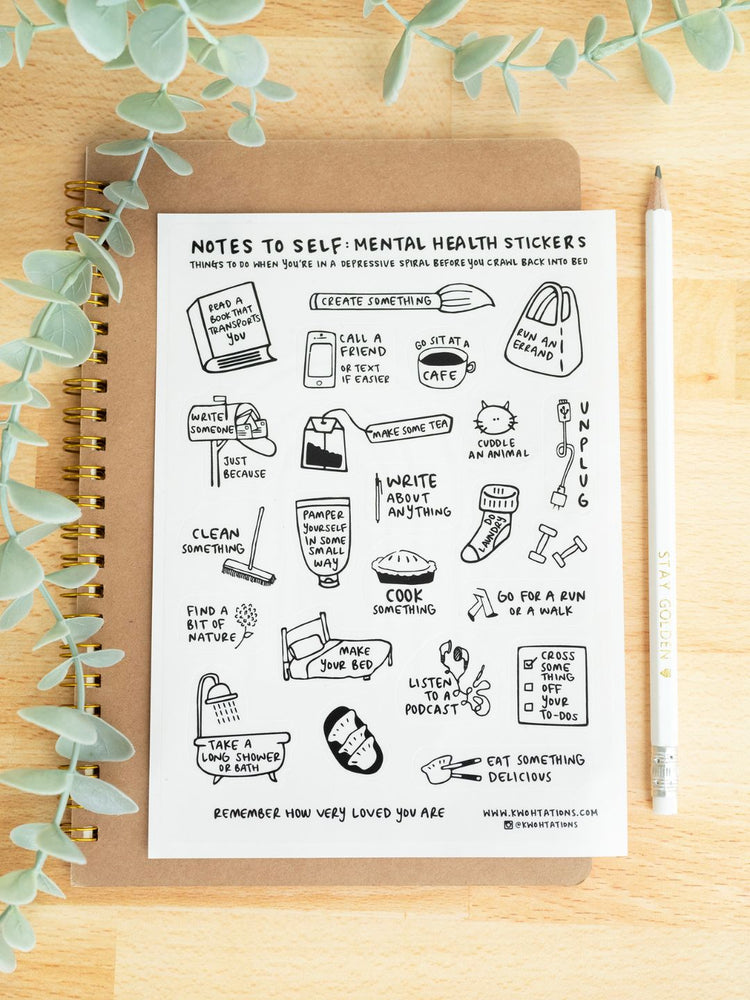 NOTES TO SELF: MENTAL HEALTH STICKERS
THINGS TO DO WHEN YOU'RE IN A DEPRESSIVE SPIRAL BEFORE YOU CRAWL BACK INTO BED
READ A
BOOK THAT
TRANSPORTS
YOU
CREATE SOMETHING
CALL A
FRIEND
OR TEXT
IF EASIER
GO SIT AT A
CAFE
RUN AN
ERRAND
WRITE
SOMEONE
JUST
BECAUSE
MAKE SOME TEA
CUDDLE
AN ANIMAL
UNPLUG
CLEAN
SOMETHING
PAMPER
YOURSELF
IN SOME
SMALL
WAY
WRITE
ABOUT
ANYTHING
DO
LAUNDRY
COOK
SOMETHING
FIND A
BIT OF
NATURE
GO FOR A RUN
OR A WALK
MAKE
YOUR BED
LISTEN
TO A
PODCAST
CROSS
SOME
THING
OFF
YOUR
TO-DOS
TAKE A
LONG SHOWER
OR BATH
EAT SOMETHING
DELICIOUS
REMEMBER HOW VERY LOVED YOU ARE
WWW.KWOHTATIONS.COM
@KWOHTATIONS
STAY GOLDEN